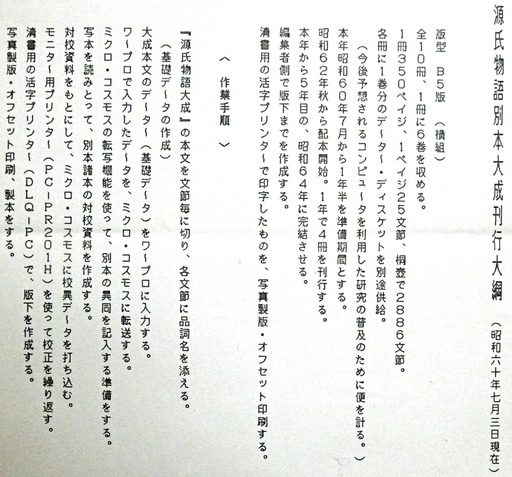 源氏物語別本大成刊行大綱 （昭和六十年七月三日現在）
版型　Ｂ５版　（横組）
全１０冊、１冊に６巻を収める。
１冊３５０ページ、１ページ２５文節、桐壺で２８８６文節。
各冊に１巻分のデーター・ディスケットを別途供給。
（今後予想されるコンピュータを利用した研究の普及のために便を計る。）
本年昭和６０年７月から１年半を準備期間とする。
昭和６２年秋から配本開始。１年で４冊を刊行する。
本年から５年目の、昭和６４年に完結させる。
編集者側で版下までを作成する。
清書用の活字プリンターで印字したものを、写真製版・オフセット印刷する。
〈　作業手順　〉
『源氏物語大成』の本文を文節毎に切り、各文節に品詞名を添える。
（基礎データの作成）
大成本文のデーター（基礎データ）をワープロに入力する。
ワープロで入力したデータを、ミクロ・コスモスに転送する。
ミクロ・コスモスの転写機能を使って、別本の異同を記入する準備をする。
写本を読みとって、別本諸本の対校資料を作成する。
対校資料をもとにして、ミクロ・コスモスに校異データを打ち込む。
モニター用プリンター（ＰＣ－ＰＲ２０１Ｈ）を使って校正を繰り返す。
清書用の活字プリンター（ＤＬＱ－ＰＣ）で、版下を作成する。
写真製版・オフセット印刷、製本をする。